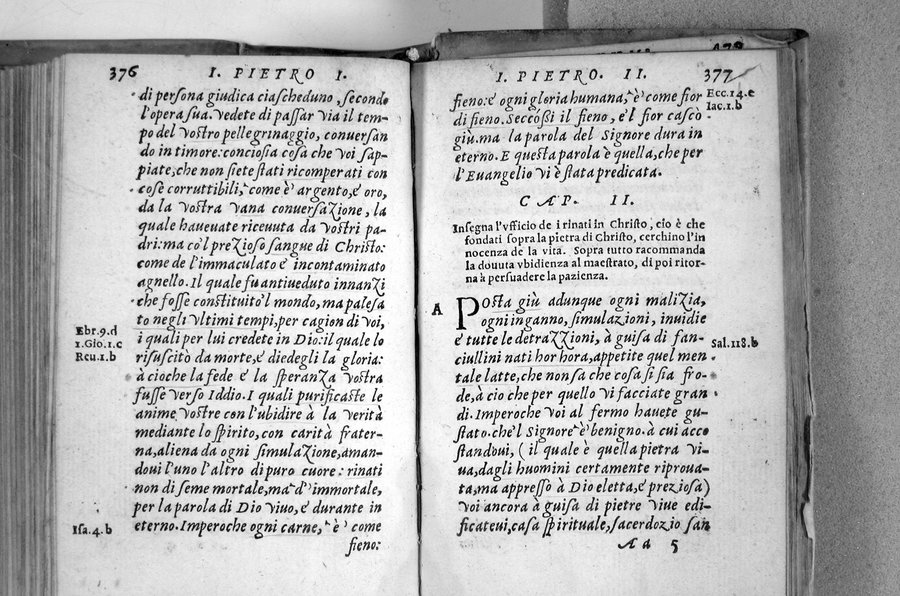 376 I. PIETRO I.
di persona giudica ciascheduno, secondo
l'opera sua. vedete di passar via il tem
po del vostro pellegrinaggio, conuersan
do in timore: conciosia cosa che voi sap-
piate, che non siete stati ricomperati con
cose corruttibili, come è argento, e oro,
da la vostra vana conuersazione, la
quale haueuate riceuuta da vostri pa-
dri: ma co'l prezioso sangue di Christo:
come de l'immaculato e incontaminato
agnello. Il quale fu antiueduto innanzi
che fosse constituito'l mondo, ma palesa
to negli vltimi tempi, per cagion di voi,
i quali per lui credete in Dio: il quale lo
risuscitò da morte, e diedegli la gloria:
à cioche la fede e la speranza vostra
fusse verso Iddio. I quali purificaste le
anime vostre con l'ubidire à la verità
mediante lo spirito, con carità frater-
na, aliena da ogni simulazione, aman-
doui l'uno l'altro di puro cuore: rinati
non di seme mortale, ma d'immortale,
per la parola di Dio viuo, e durante in
eterno. Imperoche ogni carne, è come
fieno:
Ebr.9.d
1.Gio.1.c
Reu.1.b
Isa.4.b
I. PIETRO. II. 377
fieno: e ogni gloria humana, è come fior
di fieno. Seccossi il fieno, e'l fior cascò
giù. ma la parola del Signore dura in
eterno. E questa parola è quella, che per
l'Euangelio vi è stata predicata.
CAP. II.
Insegna l'vfficio de i rinati in Christo, cio è che
fondati sopra la pietra di Christo, cerchino l'in
nocenza de la vita. Sopra tutto racommanda
la douuta vbidienza al maestrato, di poi ritor-
na à persuadere la pazienza.
A
Posta giù adunque ogni malizia,
ogni inganno, simulazioni, inuidie
e tutte le detrazzioni, à guisa di fan-
ciullini nati hor hora, appetite quel men
tale latte, che non sa che cosa si sia fro-
de, à cio che per quello vi facciate gran
di. Imperoche voi al fermo hauete gu-
stato. che'l Signore è benigno. à cui acco
standoui, ( il quale è quella pietra vi-
ua, dagli huomini certamente riproua-
ta, ma appresso à Dio eletta, e preziosa)
voi ancora à guisa di pietre viue edi-
ficateui, casa spirituale, sacerdozio san
Aa 5
Ecc.14.e
Iac.1.b
Sal.118.b